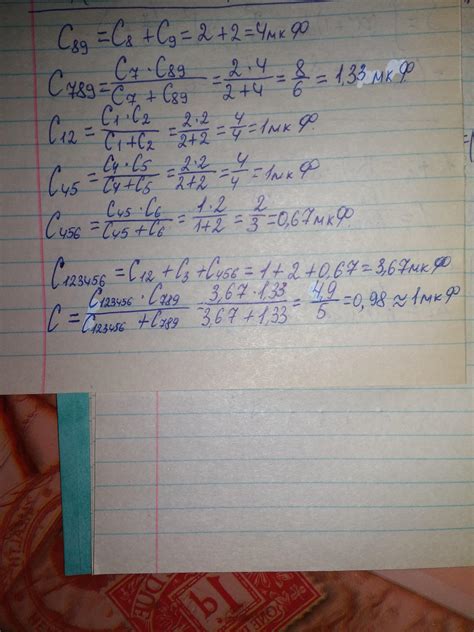 C₈₉ = C₈ + C₉ = 2 + 2 = 4 мкФ
C₇₈₉ = C₇ · C₈₉ / C₇ + C₈₉ = 2 · 4 / 2 + 4 = 8 / 6 = 1,33 мкФ.
C₁₂ = C₁ · C₂ / C₁ + C₂ = 2 · 2 / 2 + 2 = 4 / 4 = 1 мкФ.
C₄₅ = C₄ · C₅ / C₄ + C₅ = 2 · 2 / 2 + 2 = 4 / 4 = 1 мкФ.
C₄₅₆ = C₄₅ · C₆ / C₄₅ + C₆ = 1 · 2 / 1 + 2 = 2 / 3 = 0,67 мкФ.
C₁₂₃₄₅₆ = C₁₂ + C₃ + C₄₅₆ = 1 + 2 + 0,67 = 3,67 мкФ
C = C₁₂₃₄₅₆ · C₇₈₉ / C₁₂₃₄₅₆ + C₇₈₉ = 3,67 · 1,33 / 3,67 + 1,33 = 4,9 / 5 = 0,98 ≈ 1 мкФ